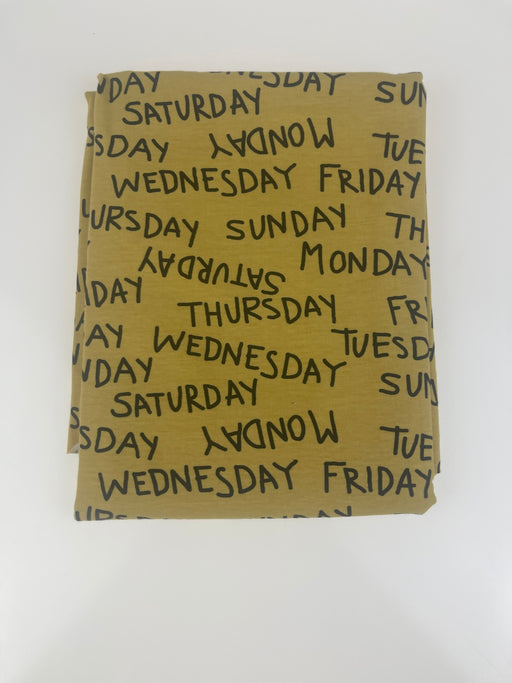 DAY NESDAY SUN
SATURDAY
SDAY MONDAY TUE
WEDNESDAY FRIDAY
URSDAY SUNDAY TH
SATURDAY MONDAY
DAY THURSDAY FRI
AY WEDNESDAY TUESDA
DAY SUN
SATURDAY
SDAY MONDAY TUE
WEDNESDAY FRIDAY